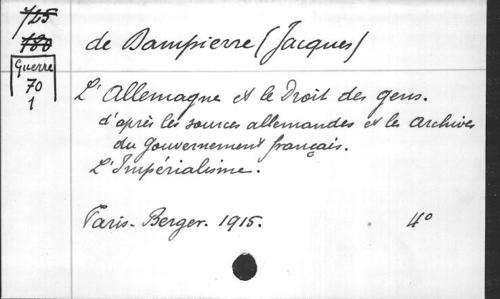 725
780
Guerre
70
1
de Dampierre (Jacques)
L'Allemagne et le Droit des gens.
d'après les sources allemandes et les archives
du gouvernement français.
L'Impérialisme.
Paris. Berger. 1915. 4°